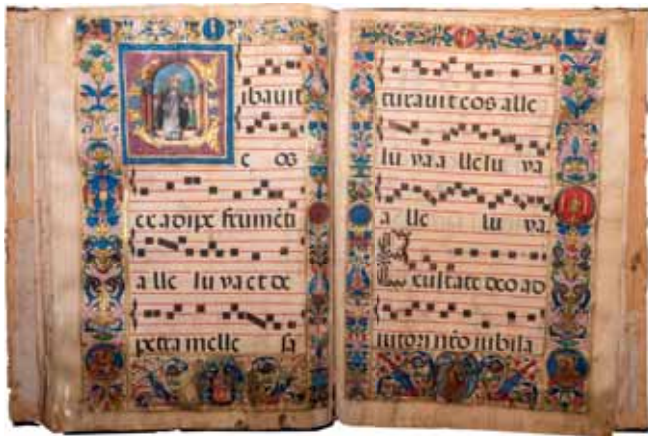 ibauit
e os
ex adipe frumēti
a lle lu ya et de
petra melle sa
turauit eos alle
lu ya a lle lu ya
a lle lu ya
Exultate deo ad
iutori nr̄o iubila